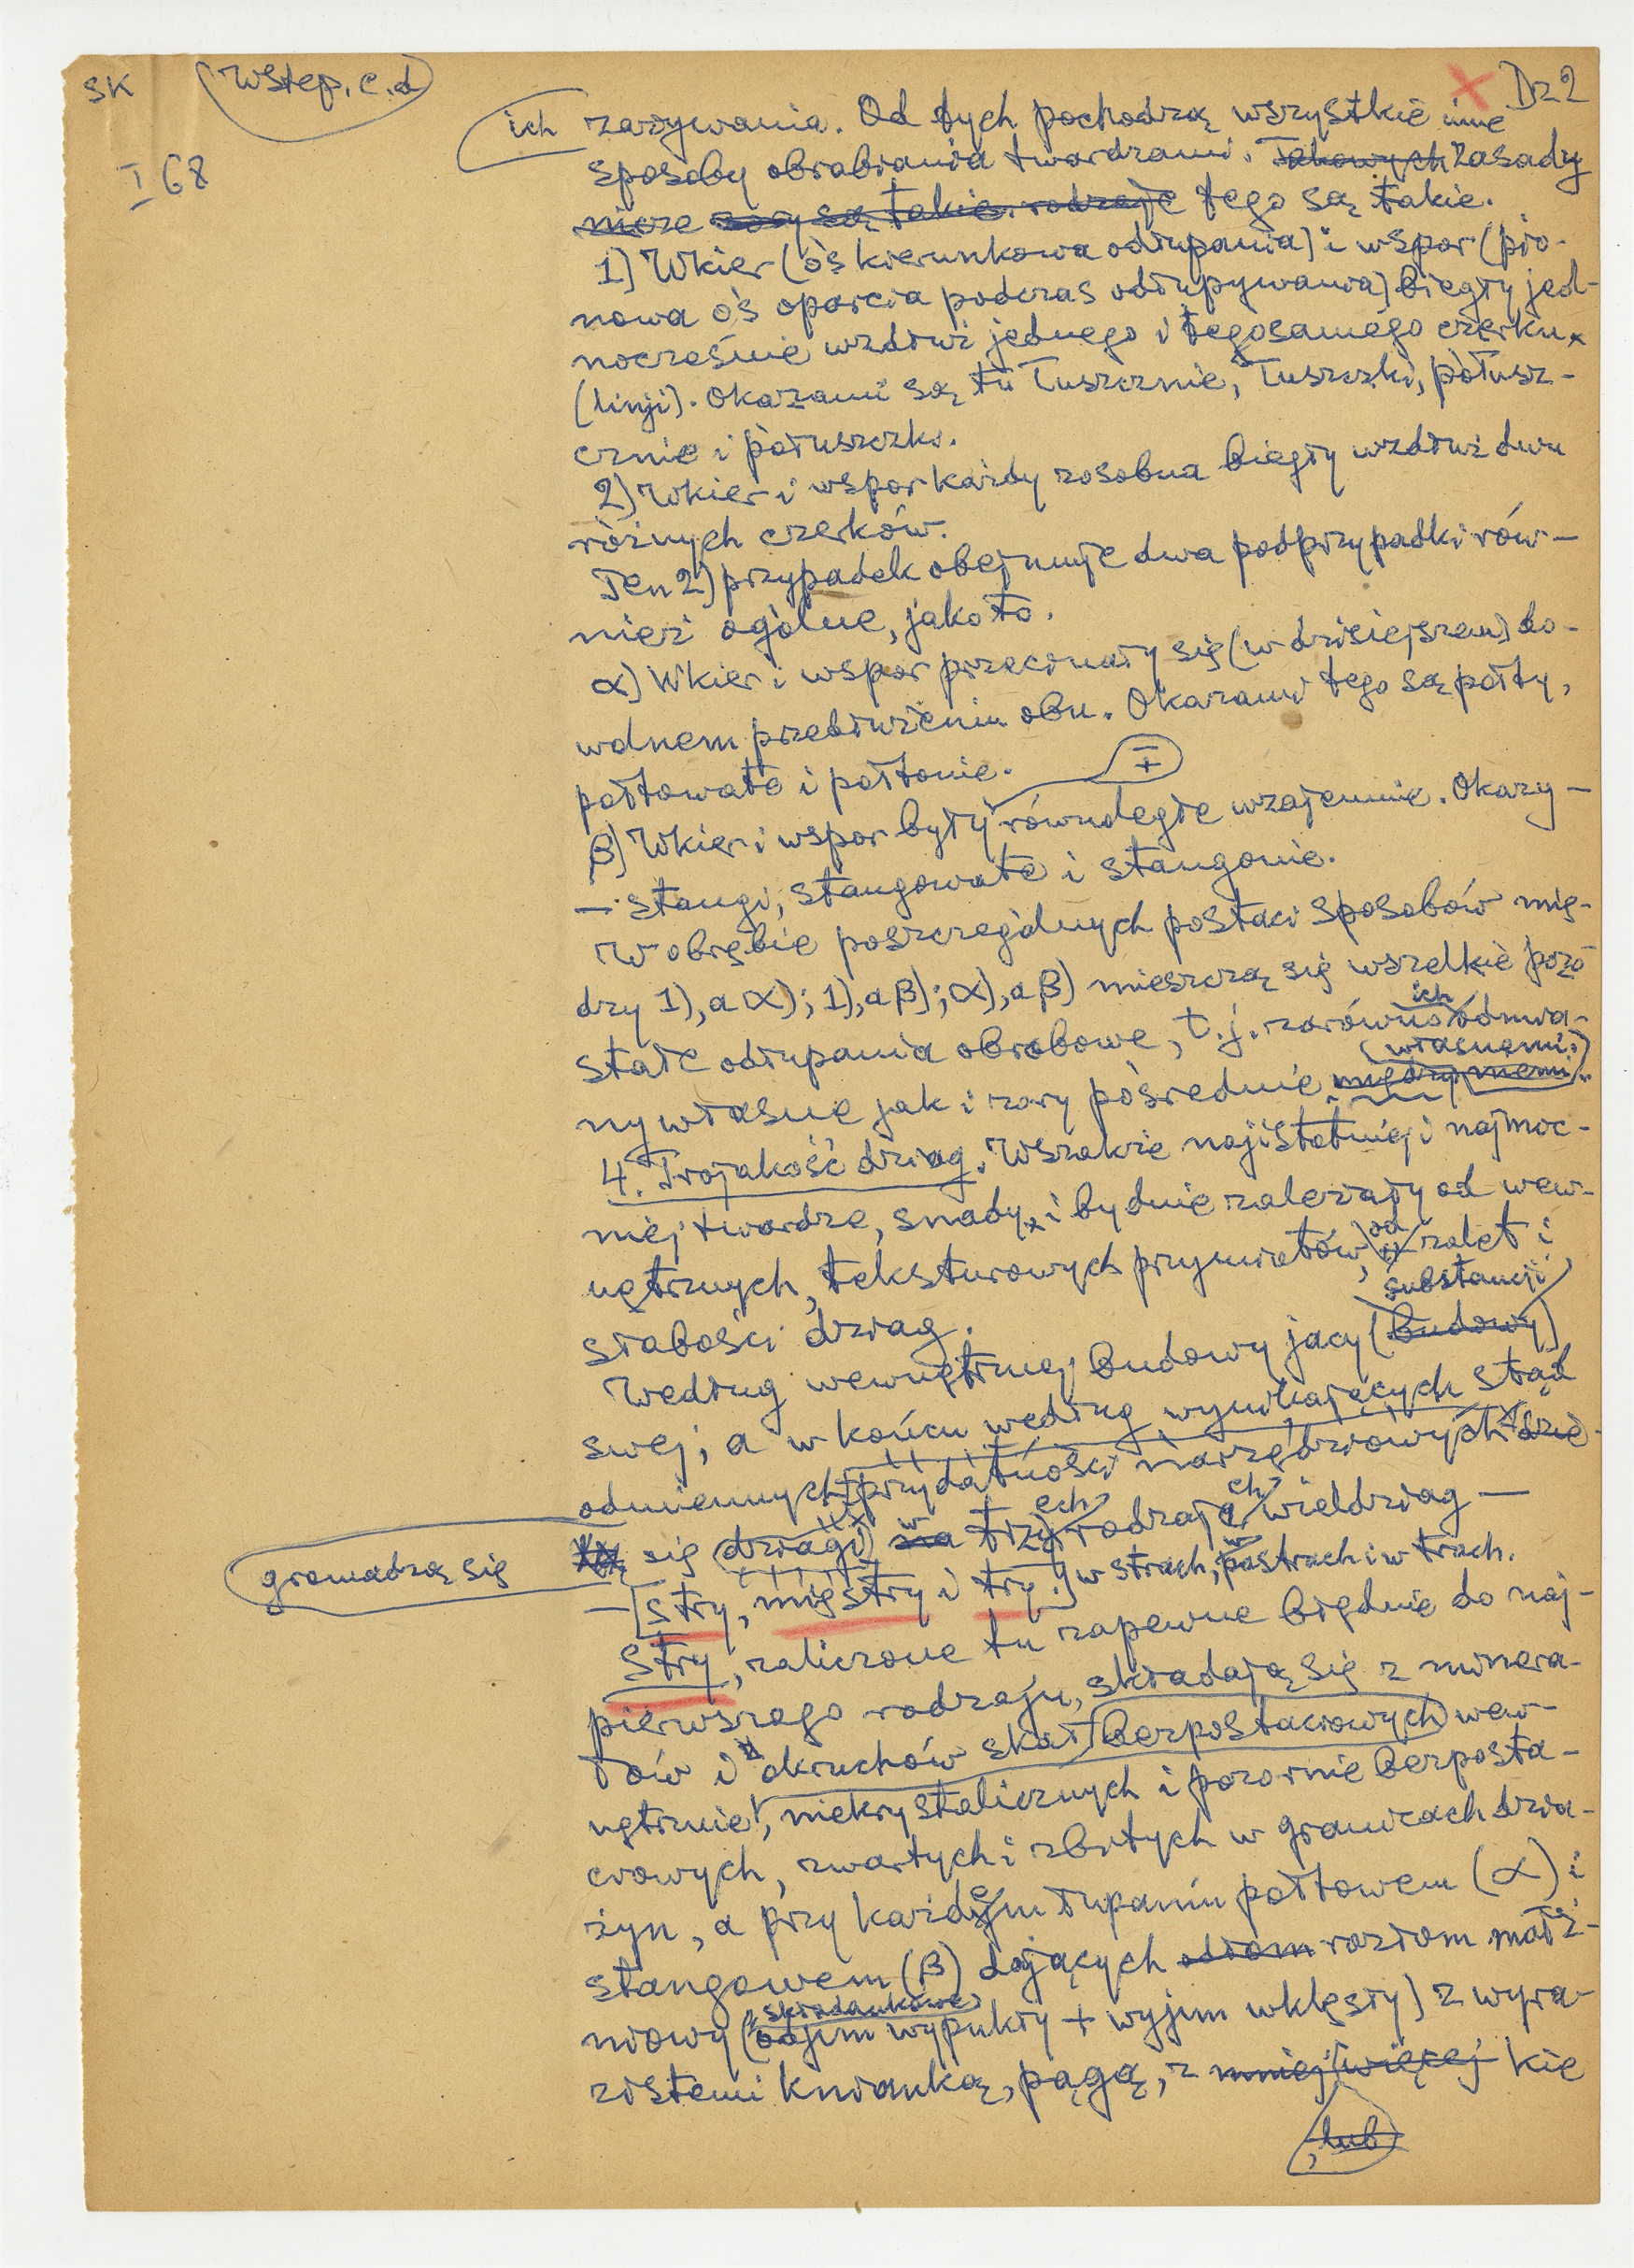 SK
Wstęp. c.d
X Dz 2
I 68
ich zażywania. Od tych pochodzą wszystkie inne
sposoby obrabiania twardzami. Takowych Zasady
tego są takie.
1) Wkier (oś kierunkowa odłupania) i wspor (pio-
nowa oś oparcia podczas odłupywania) biegły jed-
nocześnie wzdłuż jednego i tegosamego czerku
(linji). Okazami są tu łuszcznie, łuszczki, półusz-
cznie i półuszczki.
2) Wkier i wspor każdy zosobna biegły wzdłuż dwu
różnych czerków.
Ten 2) przypadek obejmuje dwa podprzypadki rów-
nież ogólne, jako to.
α) Wkier i wspor przecinały się (w dzisiejszem) do-
wolnem przedłużeniu obu. Okazami tego są połty,
połtowate i połtonie.
β) Wkier i wspor były ± równoległe wzajemnie. Okazy -
— stangi, stangowate i stangonie.
W obrębie poszczególnych postaci sposobów mię-
dzy 1), a α); 1), a β); α), a β) mieszczą się wszelkie pozo
stałe odłupania obrobowe, t.j. zarówno ich odmia-
ny własne jak i zory pośrednie między niemi (własnemi.)
4. Trojakość dziag. Wszakże najistotniej i najmoc-
niej twardze, snady, i bydnie zależały od wew-
nętrznych, teksturowych przymiotów, od zalet i
słabości dziag.
Według wewnętrznej budowy jacy (budowy) substancji
swej, a w końcu według wynikających stąd
odmiennych przydatności narzędziowych dzie-
gromadzą się się (dziagi) na w trzech rodzajach wieldziag —
— [stry, mięstry i try.] w strach, w trach.
Stry, zaliczone tu zapewne błędnie do naj-
pierwszego rodzaju, składają się z minera-
łów i okruchów skał bezpostaciowych wew-
nętrznie, niekrystalicznych i pozornie bezposta-
ciowych, zwartych i zbitych w granicach dzia-
żyn, a przy każdem łupaniu połtowem (α) i
stangowem (β) dających odłam rozłom małż-
niowy (składankowe odjem wypukły + wyjem wklęsły) z wyra-
zistemi kniamką, pągą, z mniej więcej kie
, lub